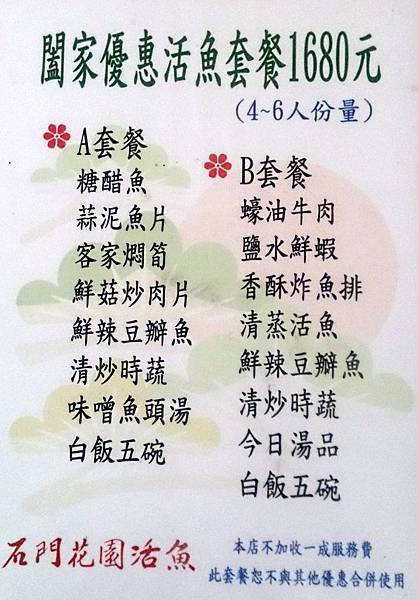 闔家優惠活魚套餐1680元
(4~6人份量)
A套餐
糖醋魚
蒜泥魚片
客家燜筍
鮮菇炒肉片
鮮辣豆瓣魚
清炒時蔬
味噌魚頭湯
白飯五碗
B套餐
蠔油牛肉
鹽水鮮蝦
香酥炸魚排
清蒸活魚
鮮辣豆瓣魚
清炒時蔬
今日湯品
白飯五碗
石門花園活魚
本店不加收一成服務費
此套餐恕不與其他優惠合併使用